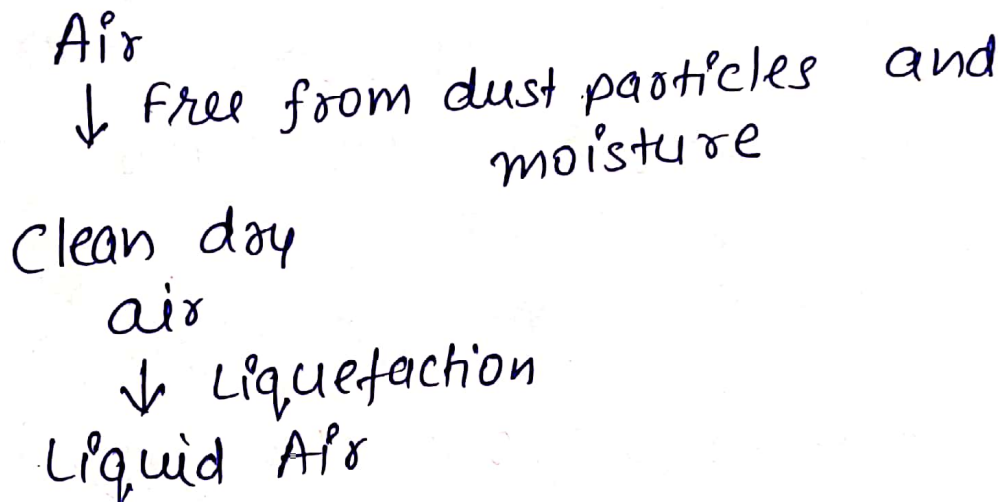 Air
↓ Free from dust particles and
moisture
Clean dry
air
↓ Liquefaction
Liquid Air